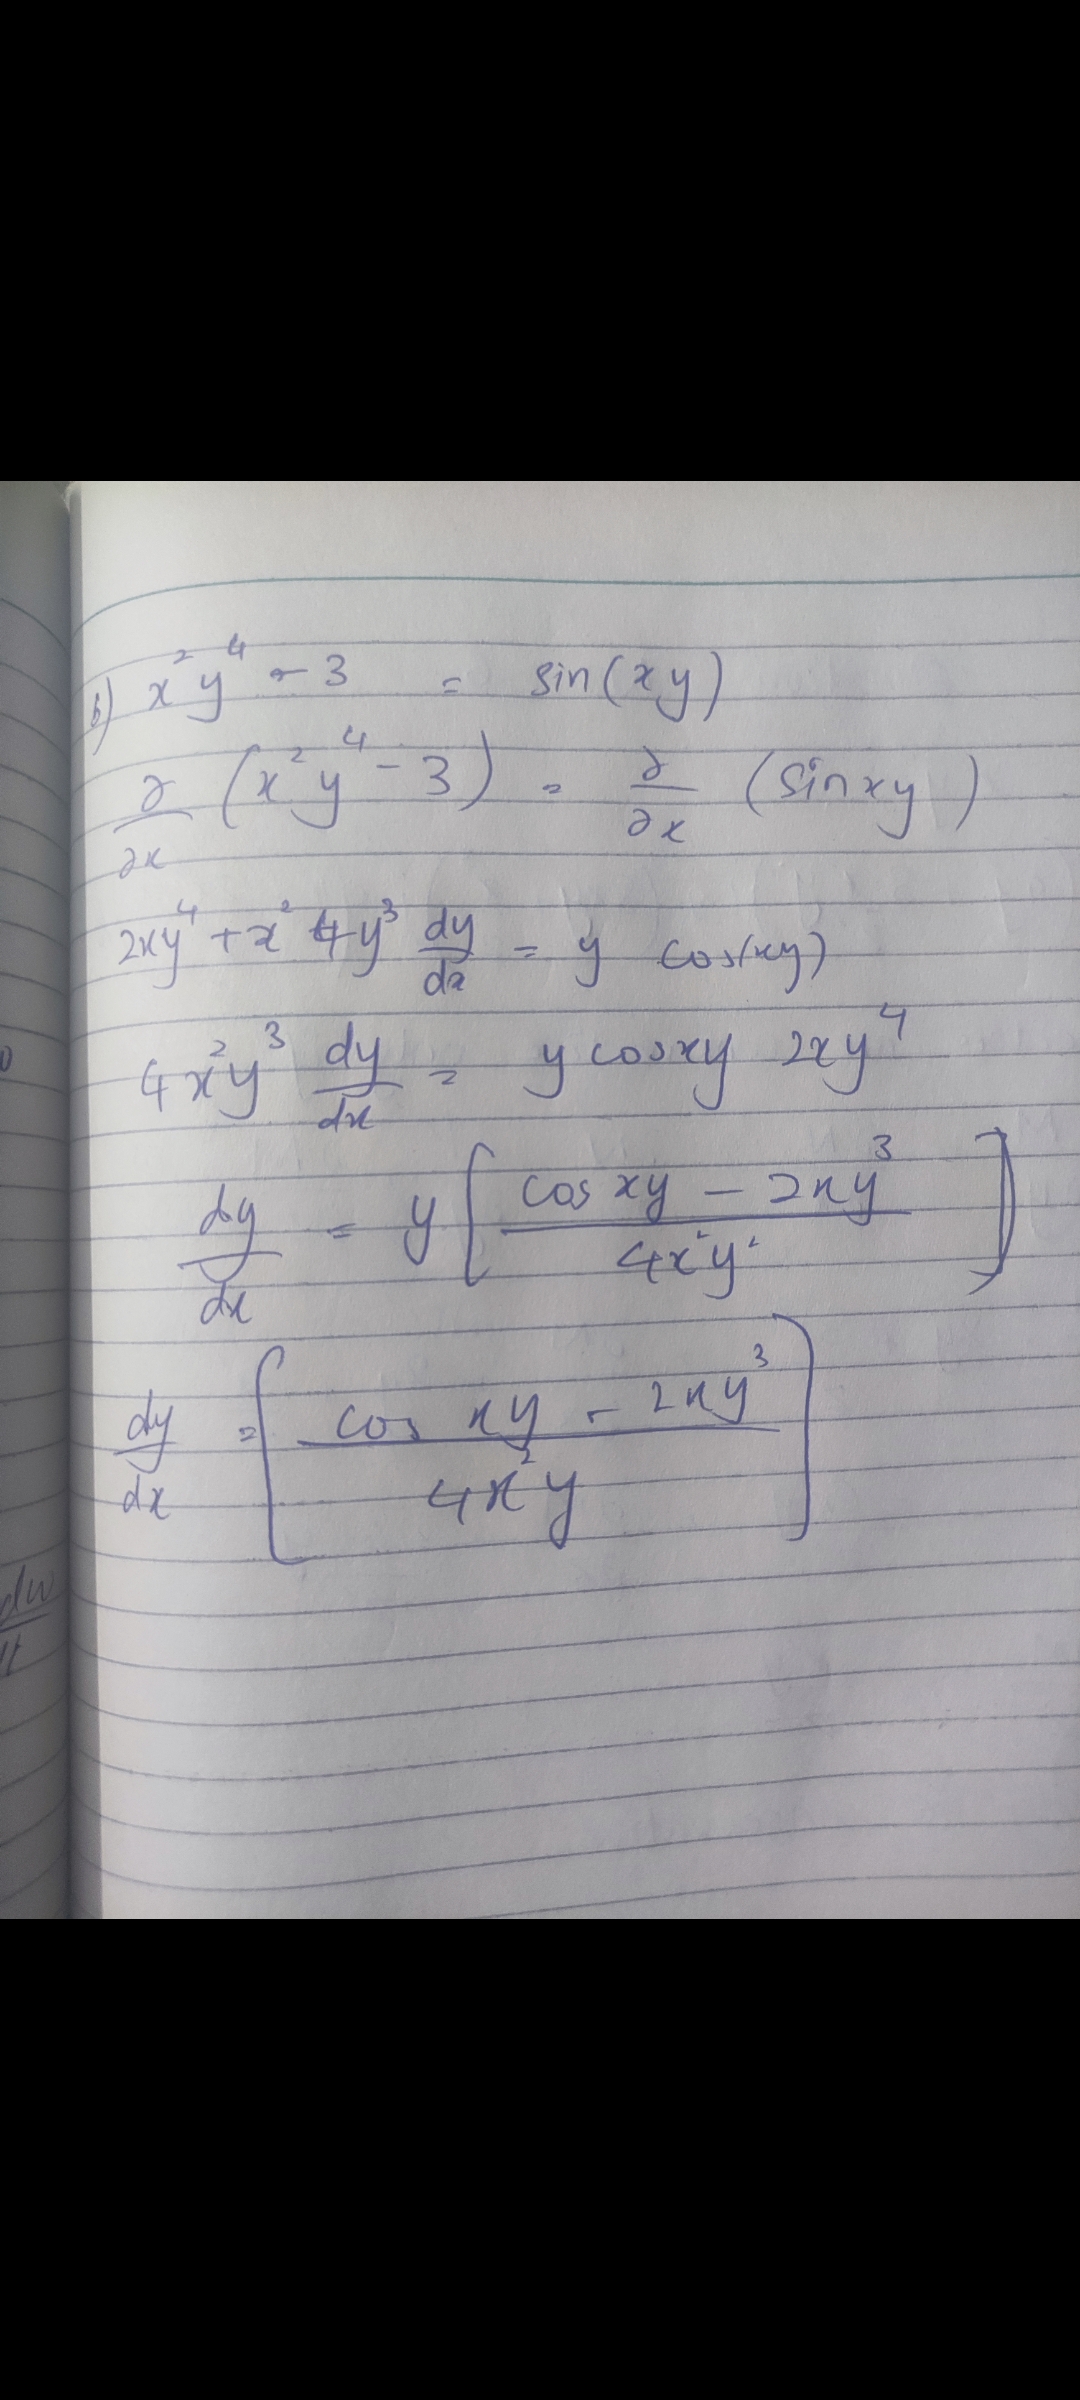 b) x²y⁴ - 3 = sin(xy)
∂/∂x (x²y⁴ - 3) = ∂/∂x (sinxy)
2xy⁴ + x² 4y³ dy/dx = y cos(xy)
4x²y³ dy/dx = y cosxy 2xy⁴
dy/dx = y [ (cos xy - 2xy³) / 4x²y² ]
dy/dx = [ (cos xy - 2xy³) / 4x²y ]
dw